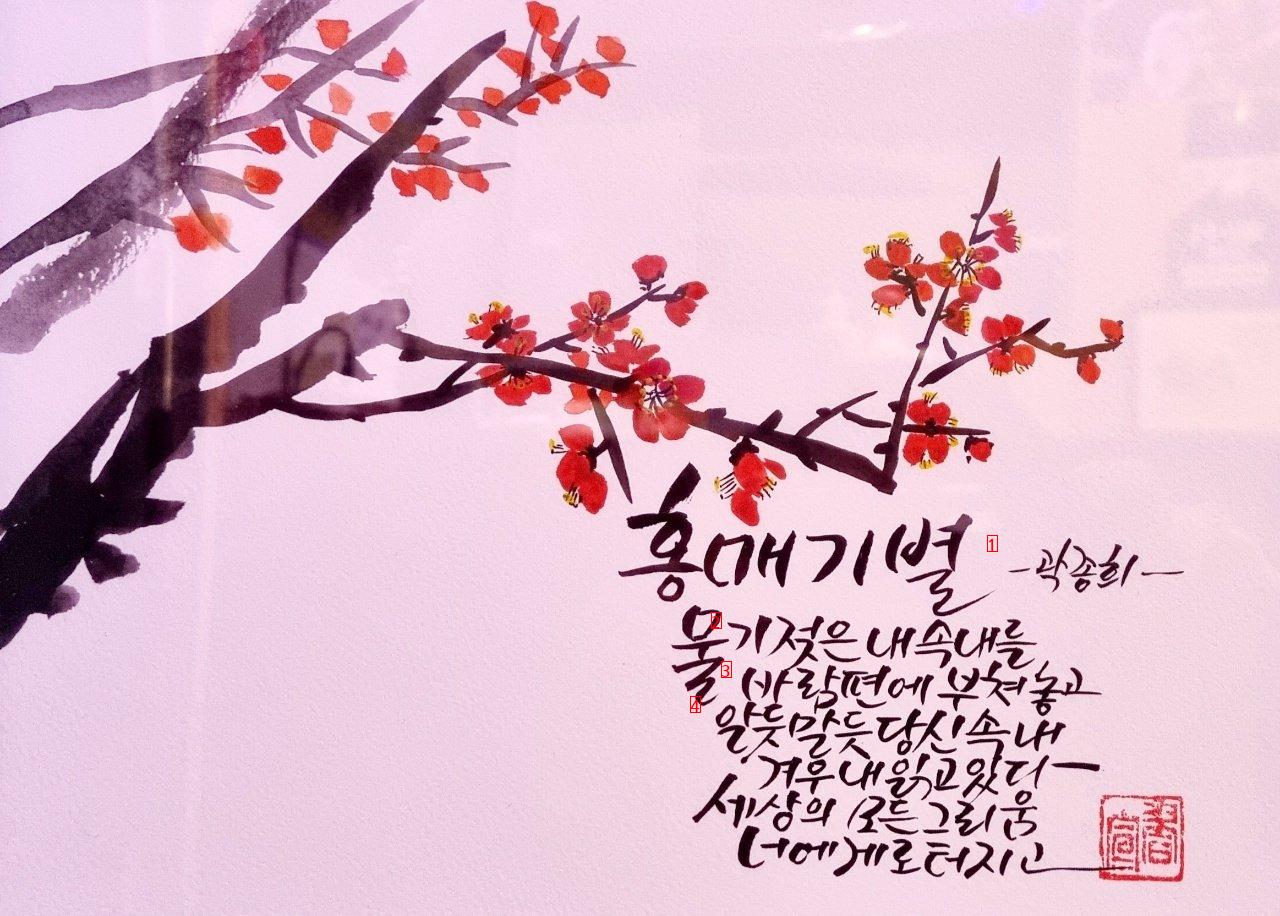 홍매기별
-곽종희-
물기젖은 내 속내를
바람편에 부쳐놓고
알듯말듯 당신 속내
겨우내 읽고 있다
세상의 모든 그리움
너에게로 터지고